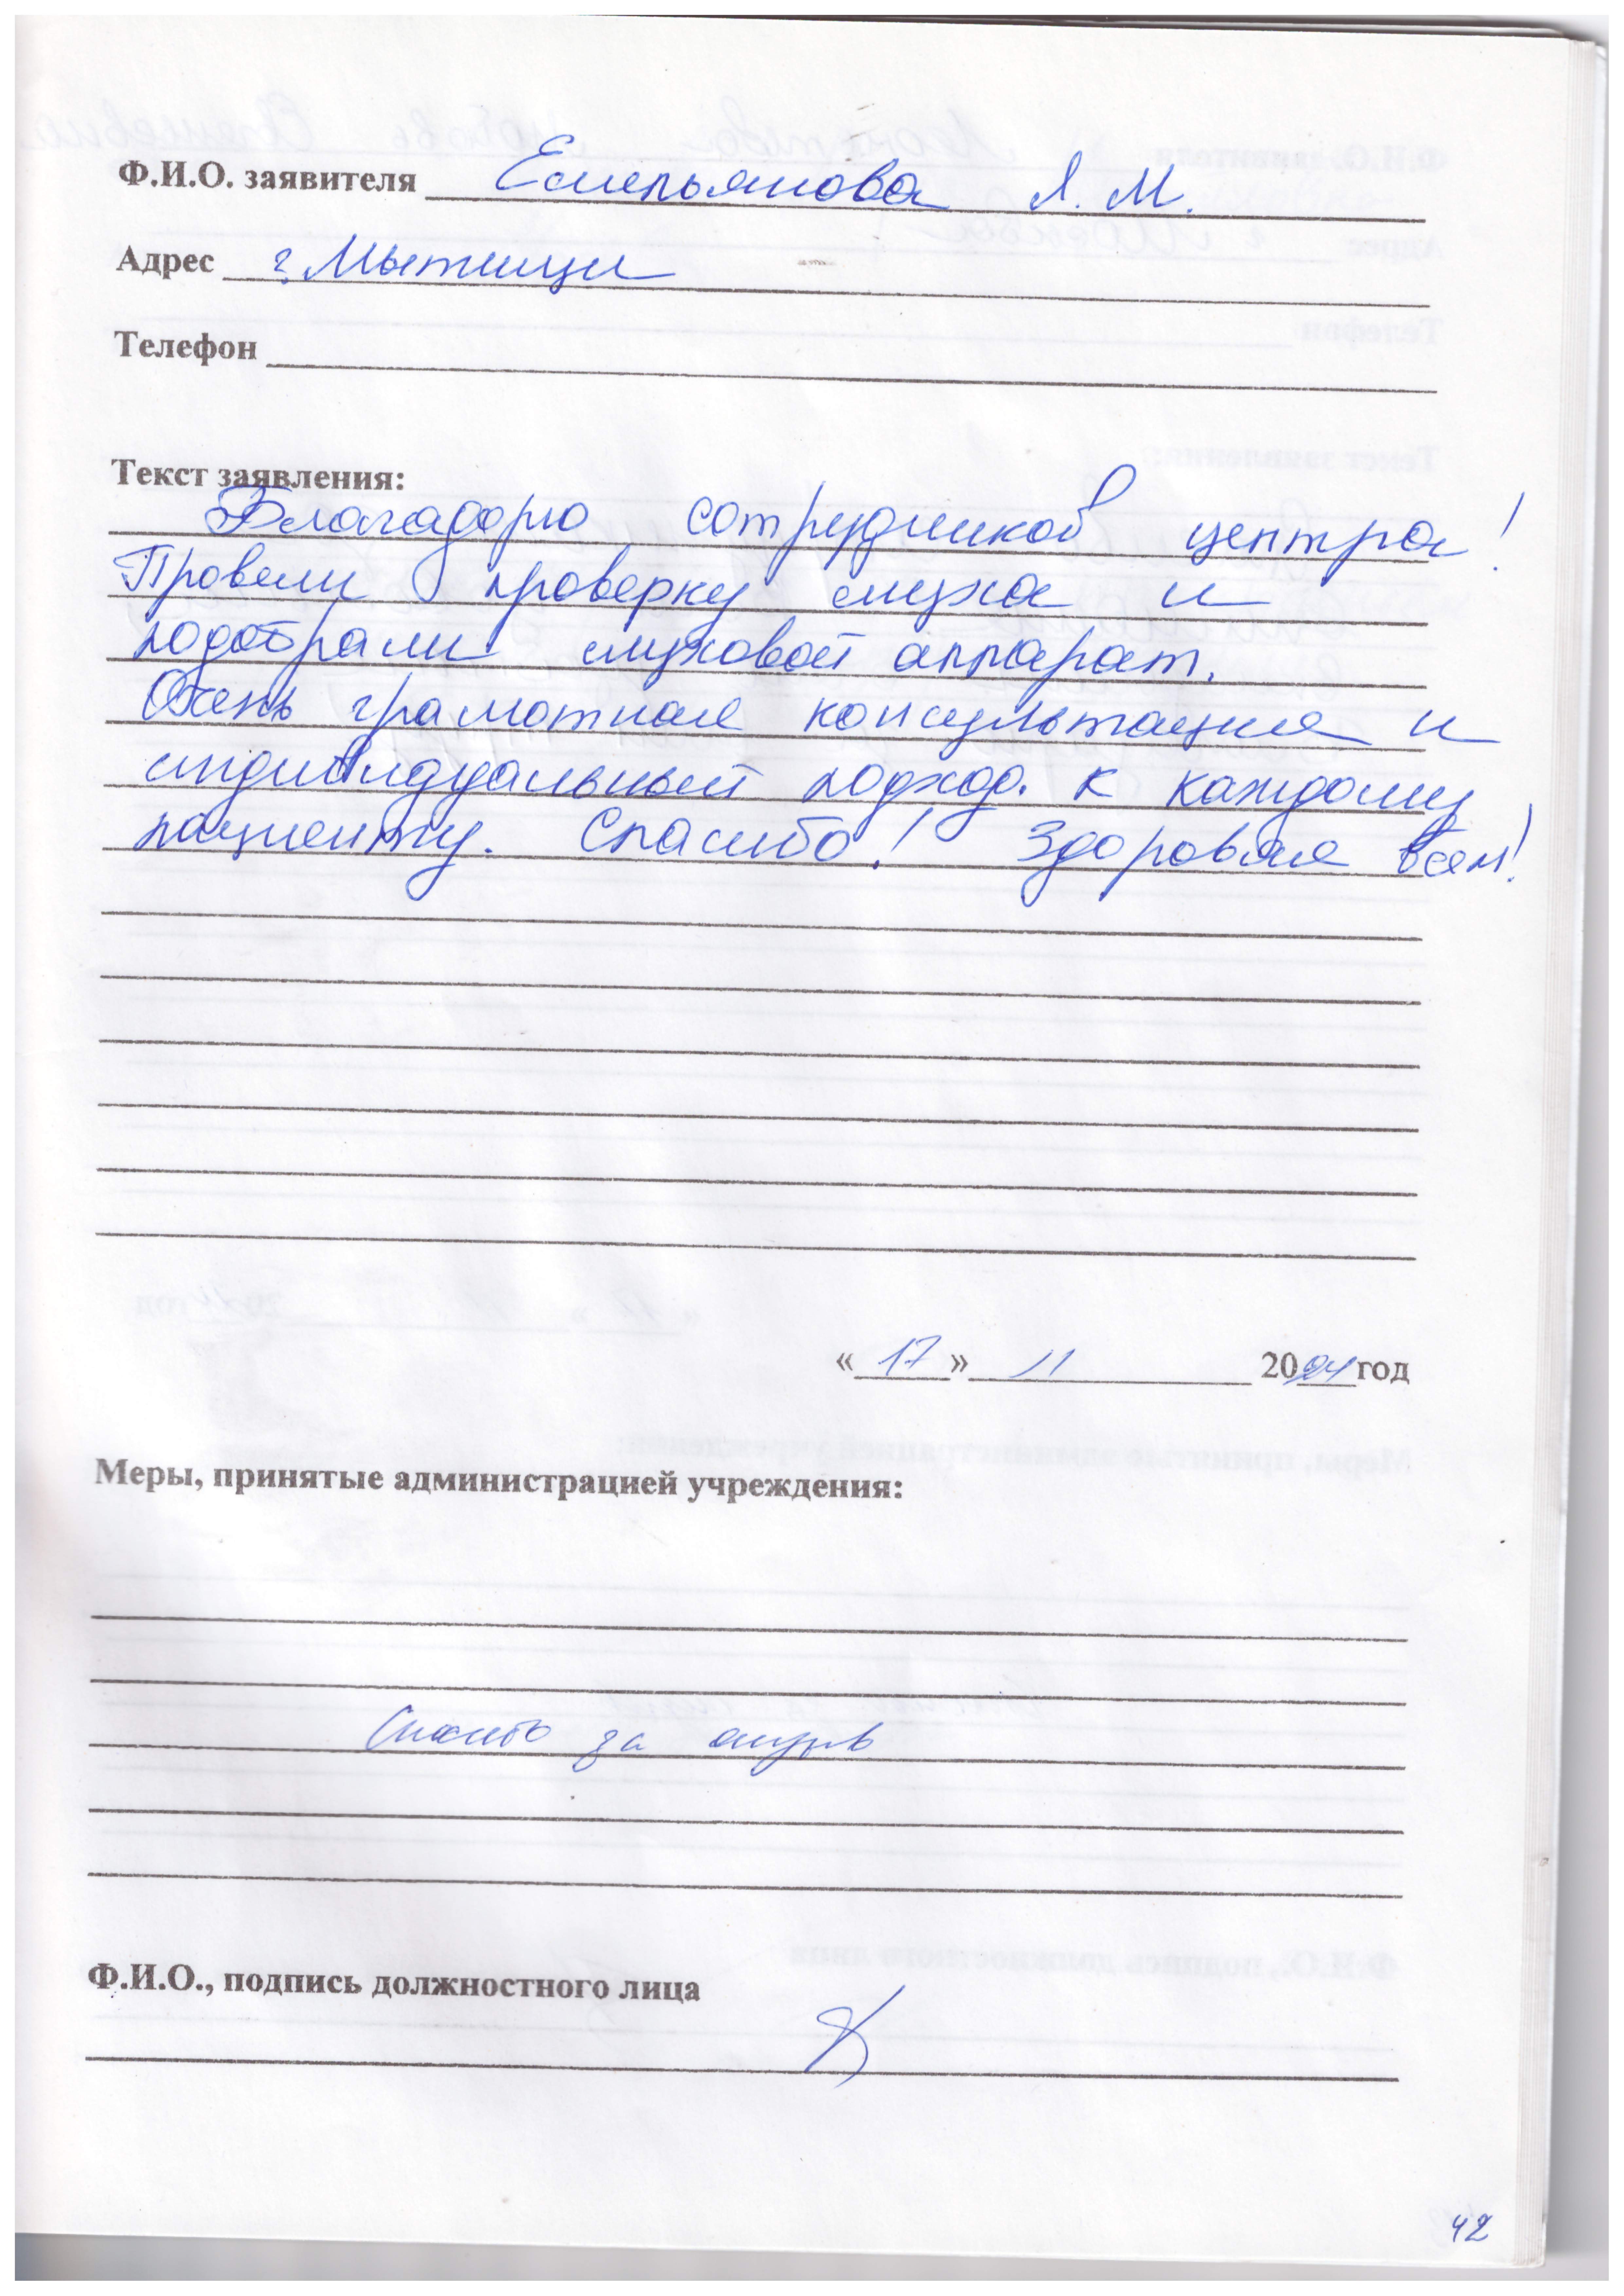 Ф.И.О. заявителя Емельянова Л. М.
Адрес г. Мытищи
Телефон
Текст заявления:
Благодарю сотрудников центра!
Провели проверку слуха и
подобрали слуховой аппарат.
Очень грамотная консультация и
индивидуальный подход. к каждому
пациенту. Спасибо! Здоровья всем!
«17» 11 2024 год
Меры, принятые администрацией учреждения:
Спасибо за отзыв
Ф.И.О., подпись должностного лица
42